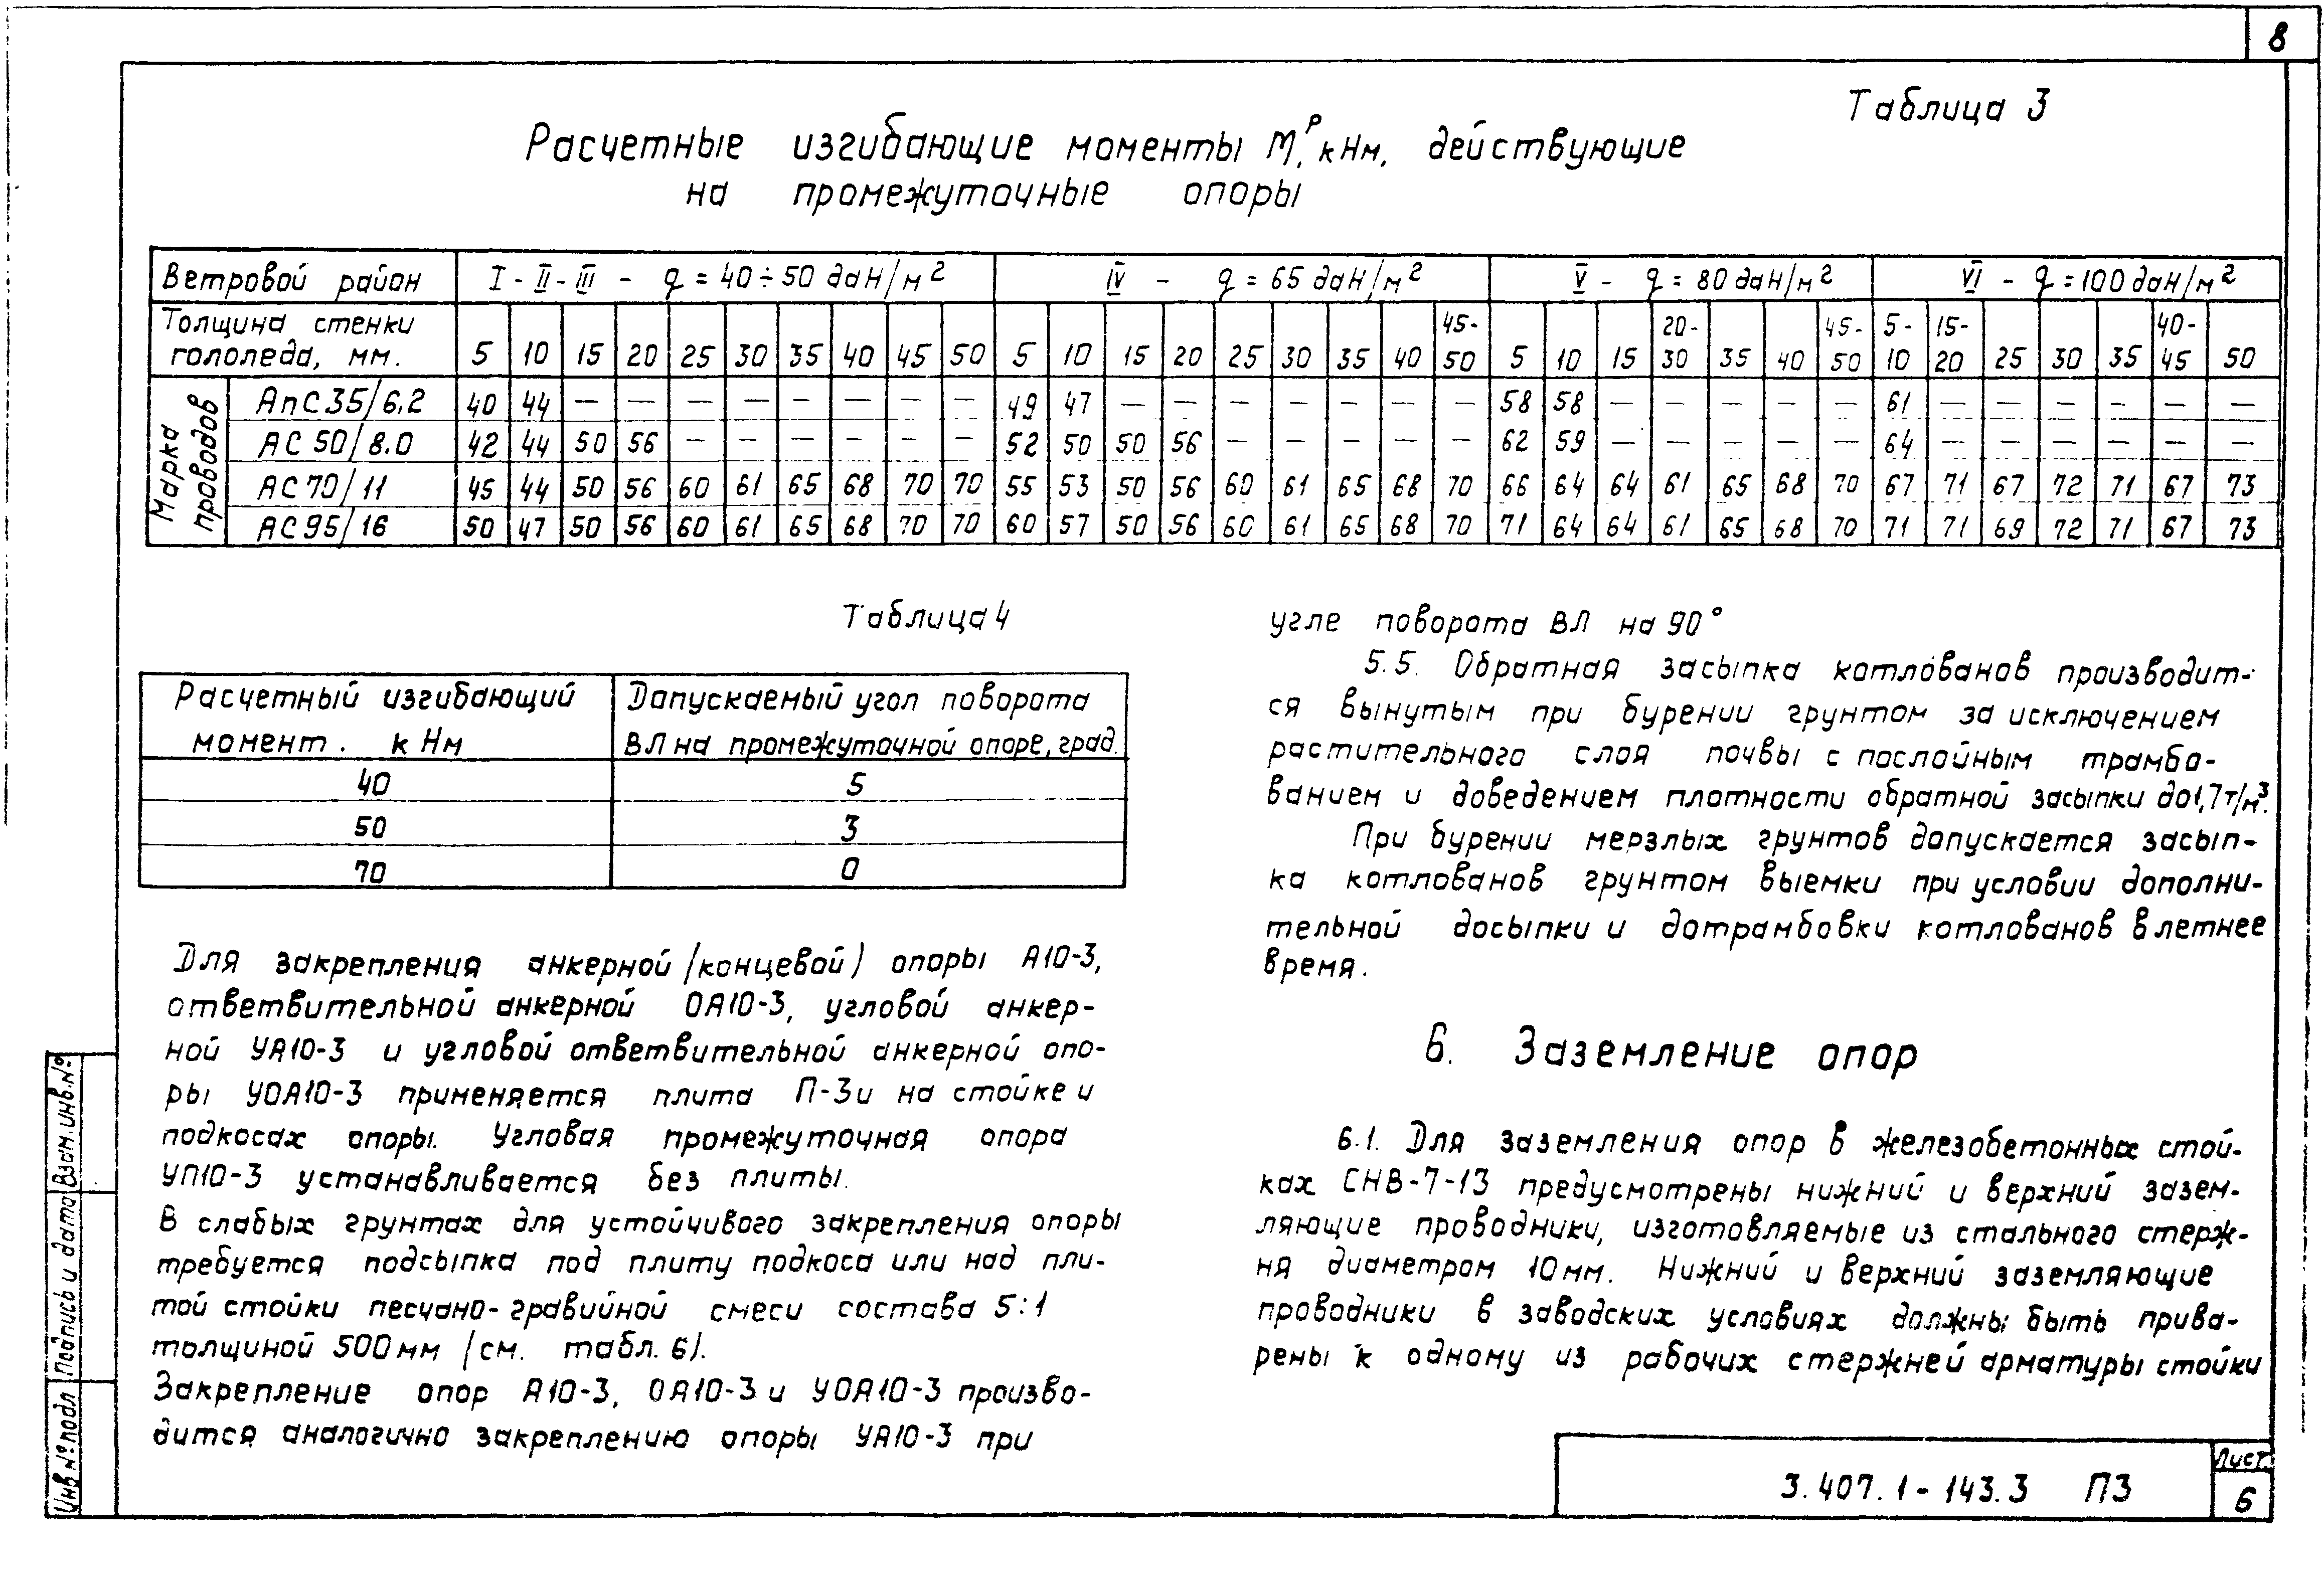 8
Таблица 3
Расчетные изгибающие моменты Мᵖ, кНм, действующие
на промежуточные опоры
Ветровой район I - II - III - q = 40÷50 даН/м² IV - q = 65 даН/м² V - q = 80 даН/м² VI - q = 100 даН/м²
Толщина стенки гололеда, мм. 5 10 15 20 25 30 35 40 45 50 5 10 15 20 25 30 35 40 45-50 5 10 15 20-30 35 40 45-50 5-10 15-20 25 30 35 40-45 50
Марка проводов
АпС35/6,2 40 44 — — — — — — — — 49 47 — — — — — — — 58 58 — — — — — 61 — — — — — —
АС50/8.0 42 44 50 56 — — — — — — 52 50 50 56 — — — — — 62 59 — — — — — 64 — — — — — —
АС70/11 45 44 50 56 60 61 65 68 70 70 55 53 50 56 60 61 65 68 70 66 64 64 61 65 68 70 67 71 67 72 71 67 73
АС95/16 50 47 50 56 60 61 65 68 70 70 60 57 50 56 60 61 65 68 70 71 64 64 61 65 68 70 71 71 69 72 71 67 73
Таблица 4
Расчетный изгибающий момент. кНм Допускаемый угол поворота ВЛ на промежуточной опоре, град.
40 5
50 3
70 0
Для закрепления анкерной /концевой) опоры А10-3,
ответвительной анкерной ОА10-3, угловой анкер-
ной УА10-3 и угловой ответвительной анкерной опо-
ры УОА10-3 применяется плита П-3и на стойке и
подкосах опоры. Угловая промежуточная опора
УП10-3 устанавливается без плиты.
В слабых грунтах для устойчивого закрепления опоры
требуется подсыпка под плиту подкоса или над пли-
той стойки песчано-гравийной смеси состава 5:1
толщиной 500мм /см. табл. 6/.
Закрепление опор А10-3, ОА10-3 и УОА10-3 произво-
дится аналогично закреплению опоры УА10-3 при
угле поворота ВЛ на 90°
5.5. Обратная засыпка котлованов производит-
ся вынутым при бурении грунтом за исключением
растительного слоя почвы с послойным трамбо-
ванием и доведением плотности обратной засыпки до 1,7т/м³.
При бурении мерзлых грунтов допускается засып-
ка котлованов грунтом выемки при условии дополни-
тельной досыпки и дотрамбовки котлованов в летнее
время.
6. Заземление опор
6.1. Для заземления опор в железобетонных стой-
ках СНВ-7-13 предусмотрены нижний и верхний зазем-
ляющие проводники, изготовляемые из стального стерж-
ня диаметром 10мм. Нижний и верхний заземляющие
проводники в заводских условиях должны быть прива-
рены к одному из рабочих стержней арматуры стойки
Взам.инв.№
Подпись и дата
Инв № подл
3.407.1-143.3 ПЗ
Лист
6